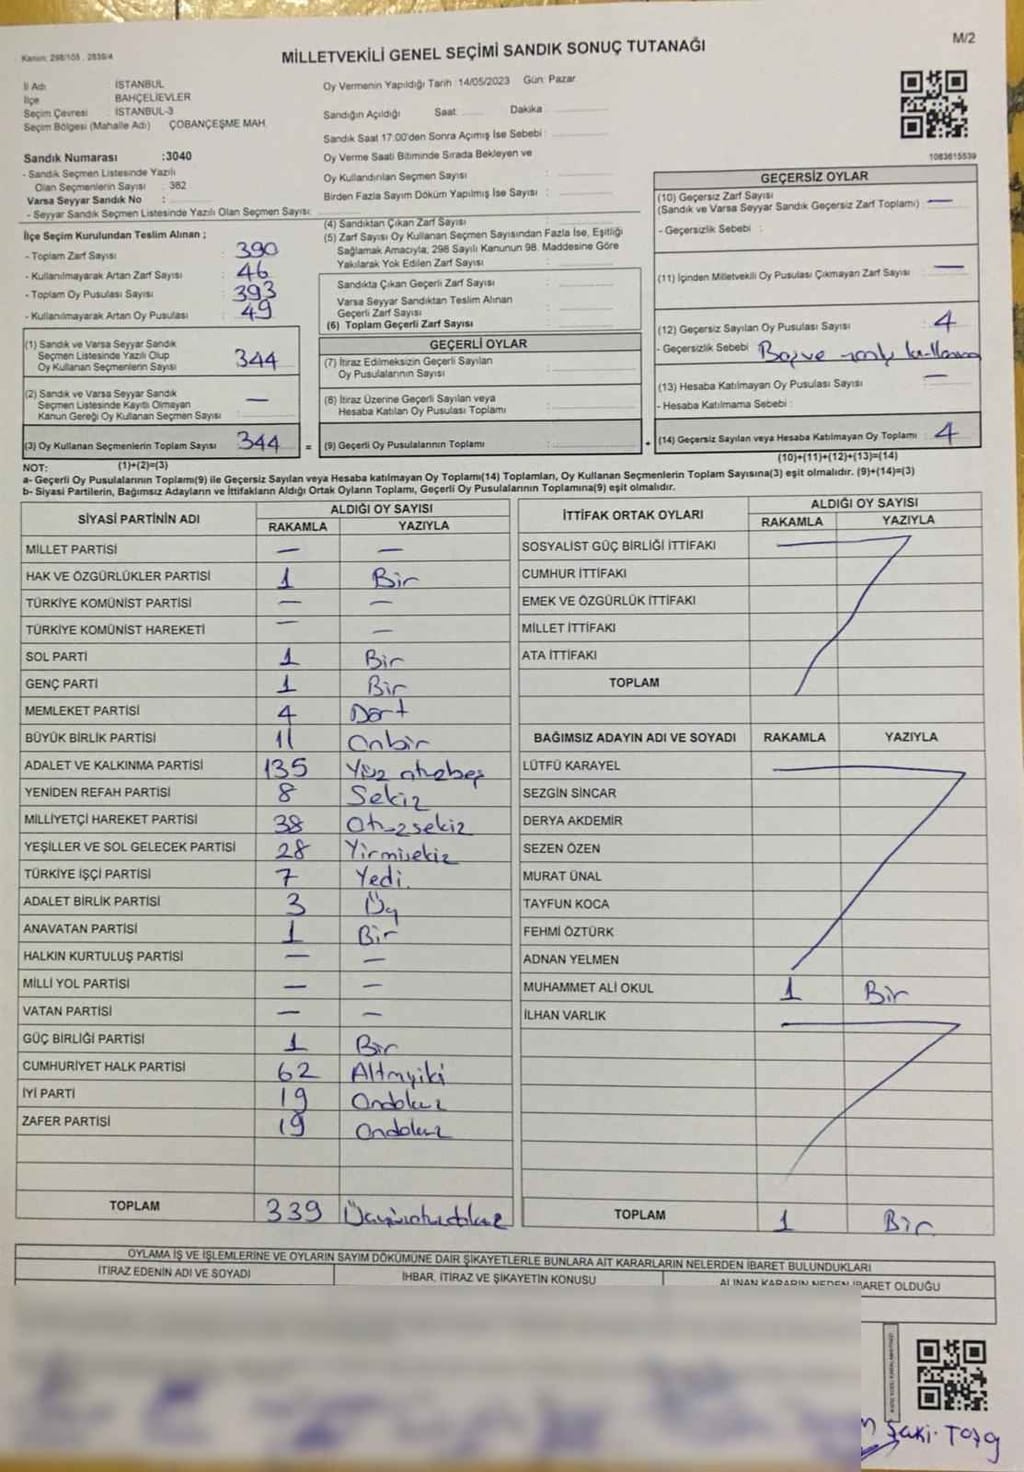 Kanun: 298/105, 2839/4
M/2
MİLLETVEKİLİ GENEL SEÇİMİ SANDIK SONUÇ TUTANAĞI
İl Adı İSTANBUL
İlçe BAHÇELİEVLER
Seçim Çevresi İSTANBUL-3
Seçim Bölgesi (Mahalle Adı) ÇOBANÇEŞME MAH.
Sandık Numarası :3040
- Sandık Seçmen Listesinde Yazılı
Olan Seçmenlerin Sayısı : 382
Varsa Seyyar Sandık No :
- Seyyar Sandık Seçmen Listesinde Yazılı Olan Seçmen Sayısı:
İlçe Seçim Kurulundan Teslim Alınan ;
- Toplam Zarf Sayısı 390
- Kullanılmayarak Artan Zarf Sayısı 46
- Toplam Oy Pusulası Sayısı 393
- Kullanılmayarak Artan Oy Pusulası 49
(1) Sandık ve Varsa Seyyar Sandık
Seçmen Listesinde Yazılı Olup
Oy Kullanan Seçmenlerin Sayısı 344
(2) Sandık ve Varsa Seyyar Sandık
Seçmen Listesinde Kayıtlı Olmayan
Kanun Gereği Oy Kullanan Seçmen Sayısı —
(3) Oy Kullanan Seçmenlerin Toplam Sayısı 344 =
Oy Vermenin Yapıldığı Tarih :14/05/2023 Gün: Pazar
Sandığın Açıldığı Saat Dakika
Sandık Saat 17:00'den Sonra Açımış İse Sebebi :
Oy Verme Saati Bitiminde Sırada Bekleyen ve
Oy Kullandırılan Seçmen Sayısı :
Birden Fazla Sayım Döküm Yapılmış İse Sayısı :
(4) Sandıktan Çıkan Zarf Sayısı :
(5) Zarf Sayısı Oy Kullanan Seçmen Sayısından Fazla İse, Eşitliği
Sağlamak Amacıyla; 298 Sayılı Kanunun 98. Maddesine Göre
Yakılarak Yok Edilen Zarf Sayısı :
Sandıkta Çıkan Geçerli Zarf Sayısı :
Varsa Seyyar Sandıktan Teslim Alınan
Geçerli Zarf Sayısı :
(6) Toplam Geçerli Zarf Sayısı :
GEÇERLİ OYLAR
(7) İtiraz Edilmeksizin Geçerli Sayılan
Oy Pusulalarının Sayısı :
(8) İtiraz Üzerine Geçerli Sayılan veya
Hesaba Katılan Oy Pusulası Toplamı :
(9) Geçerli Oy Pusulalarının Toplamı : +
1083615539
GEÇERSİZ OYLAR
(10) Geçersiz Zarf Sayısı
(Sandık ve Varsa Seyyar Sandık Geçersiz Zarf Toplamı) —
- Geçersizlik Sebebi :
(11) İçinden Milletvekili Oy Pusulası Çıkmayan Zarf Sayısı —
(12) Geçersiz Sayılan Oy Pusulası Sayısı 4
- Geçersizlik Sebebi
(13) Hesaba Katılmayan Oy Pusulası Sayısı —
- Hesaba Katılmama Sebebi :
(14) Geçersiz Sayılan veya Hesaba Katılmayan Oy Toplamı 4
(10)+(11)+(12)+(13)=(14)
NOT: (1)+(2)=(3)
a- Geçerli Oy Pusulalarının Toplamı(9) ile Geçersiz Sayılan veya Hesaba katılmayan Oy Toplamı(14) Toplamları, Oy Kullanan Seçmenlerin Toplam Sayısına(3) eşit olmalıdır. (9)+(14)=(3)
b- Siyasi Partilerin, Bağımsız Adayların ve İttifakların Aldığı Ortak Oyların Toplamı, Geçerli Oy Pusulalarının Toplamına(9) eşit olmalıdır.
SİYASİ PARTİNİN ADI ALDIĞI OY SAYISI
RAKAMLA YAZIYLA
MİLLET PARTİSİ — —
HAK VE ÖZGÜRLÜKLER PARTİSİ 1 Bir
TÜRKİYE KOMÜNİST PARTİSİ — —
TÜRKİYE KOMÜNİST HAREKETİ — —
SOL PARTİ 1 Bir
GENÇ PARTİ 1 Bir
MEMLEKET PARTİSİ 4 Dört
BÜYÜK BİRLİK PARTİSİ 11 Onbir
ADALET VE KALKINMA PARTİSİ 135 Yüz otuzbeş
YENİDEN REFAH PARTİSİ 8 Sekiz
MİLLİYETÇİ HAREKET PARTİSİ 38 Otuzsekiz
YEŞİLLER VE SOL GELECEK PARTİSİ 28 Yirmisekiz
TÜRKİYE İŞÇİ PARTİSİ 7 Yedi.
ADALET BİRLİK PARTİSİ 3 Üç
ANAVATAN PARTİSİ 1 Bir
HALKIN KURTULUŞ PARTİSİ — —
MİLLİ YOL PARTİSİ — —
VATAN PARTİSİ — —
GÜÇ BİRLİĞİ PARTİSİ 1 Bir
CUMHURİYET HALK PARTİSİ 62 Altmışiki
İYİ PARTİ 19 Ondokuz
ZAFER PARTİSİ 19 Ondokuz
TOPLAM 339 Üçyüzotuzdokuz
İTTİFAK ORTAK OYLARI ALDIĞI OY SAYISI
RAKAMLA YAZIYLA
SOSYALİST GÜÇ BİRLİĞİ İTTİFAKI
CUMHUR İTTİFAKI
EMEK VE ÖZGÜRLÜK İTTİFAKI
MİLLET İTTİFAKI
ATA İTTİFAKI
TOPLAM
BAĞIMSIZ ADAYIN ADI VE SOYADI RAKAMLA YAZIYLA
LÜTFÜ KARAYEL
SEZGİN SİNCAR
DERYA AKDEMİR
SEZEN ÖZEN
MURAT ÜNAL
TAYFUN KOCA
FEHMİ ÖZTÜRK
ADNAN YELMEN
MUHAMMET ALİ OKUL 1 Bir
İLHAN VARLIK
TOPLAM 1 Bir
OYLAMA İŞ VE İŞLEMLERİNE VE OYLARIN SAYIM DÖKÜMÜNE DAİR ŞİKAYETLERLE BUNLARA AİT KARARLARIN NELERDEN İBARET BULUNDUKLARI
İTİRAZ EDENİN ADI VE SOYADI İHBAR, İTİRAZ VE ŞİKAYETİN KONUSU ALINAN KARARIN NEDEN İBARET OLDUĞU